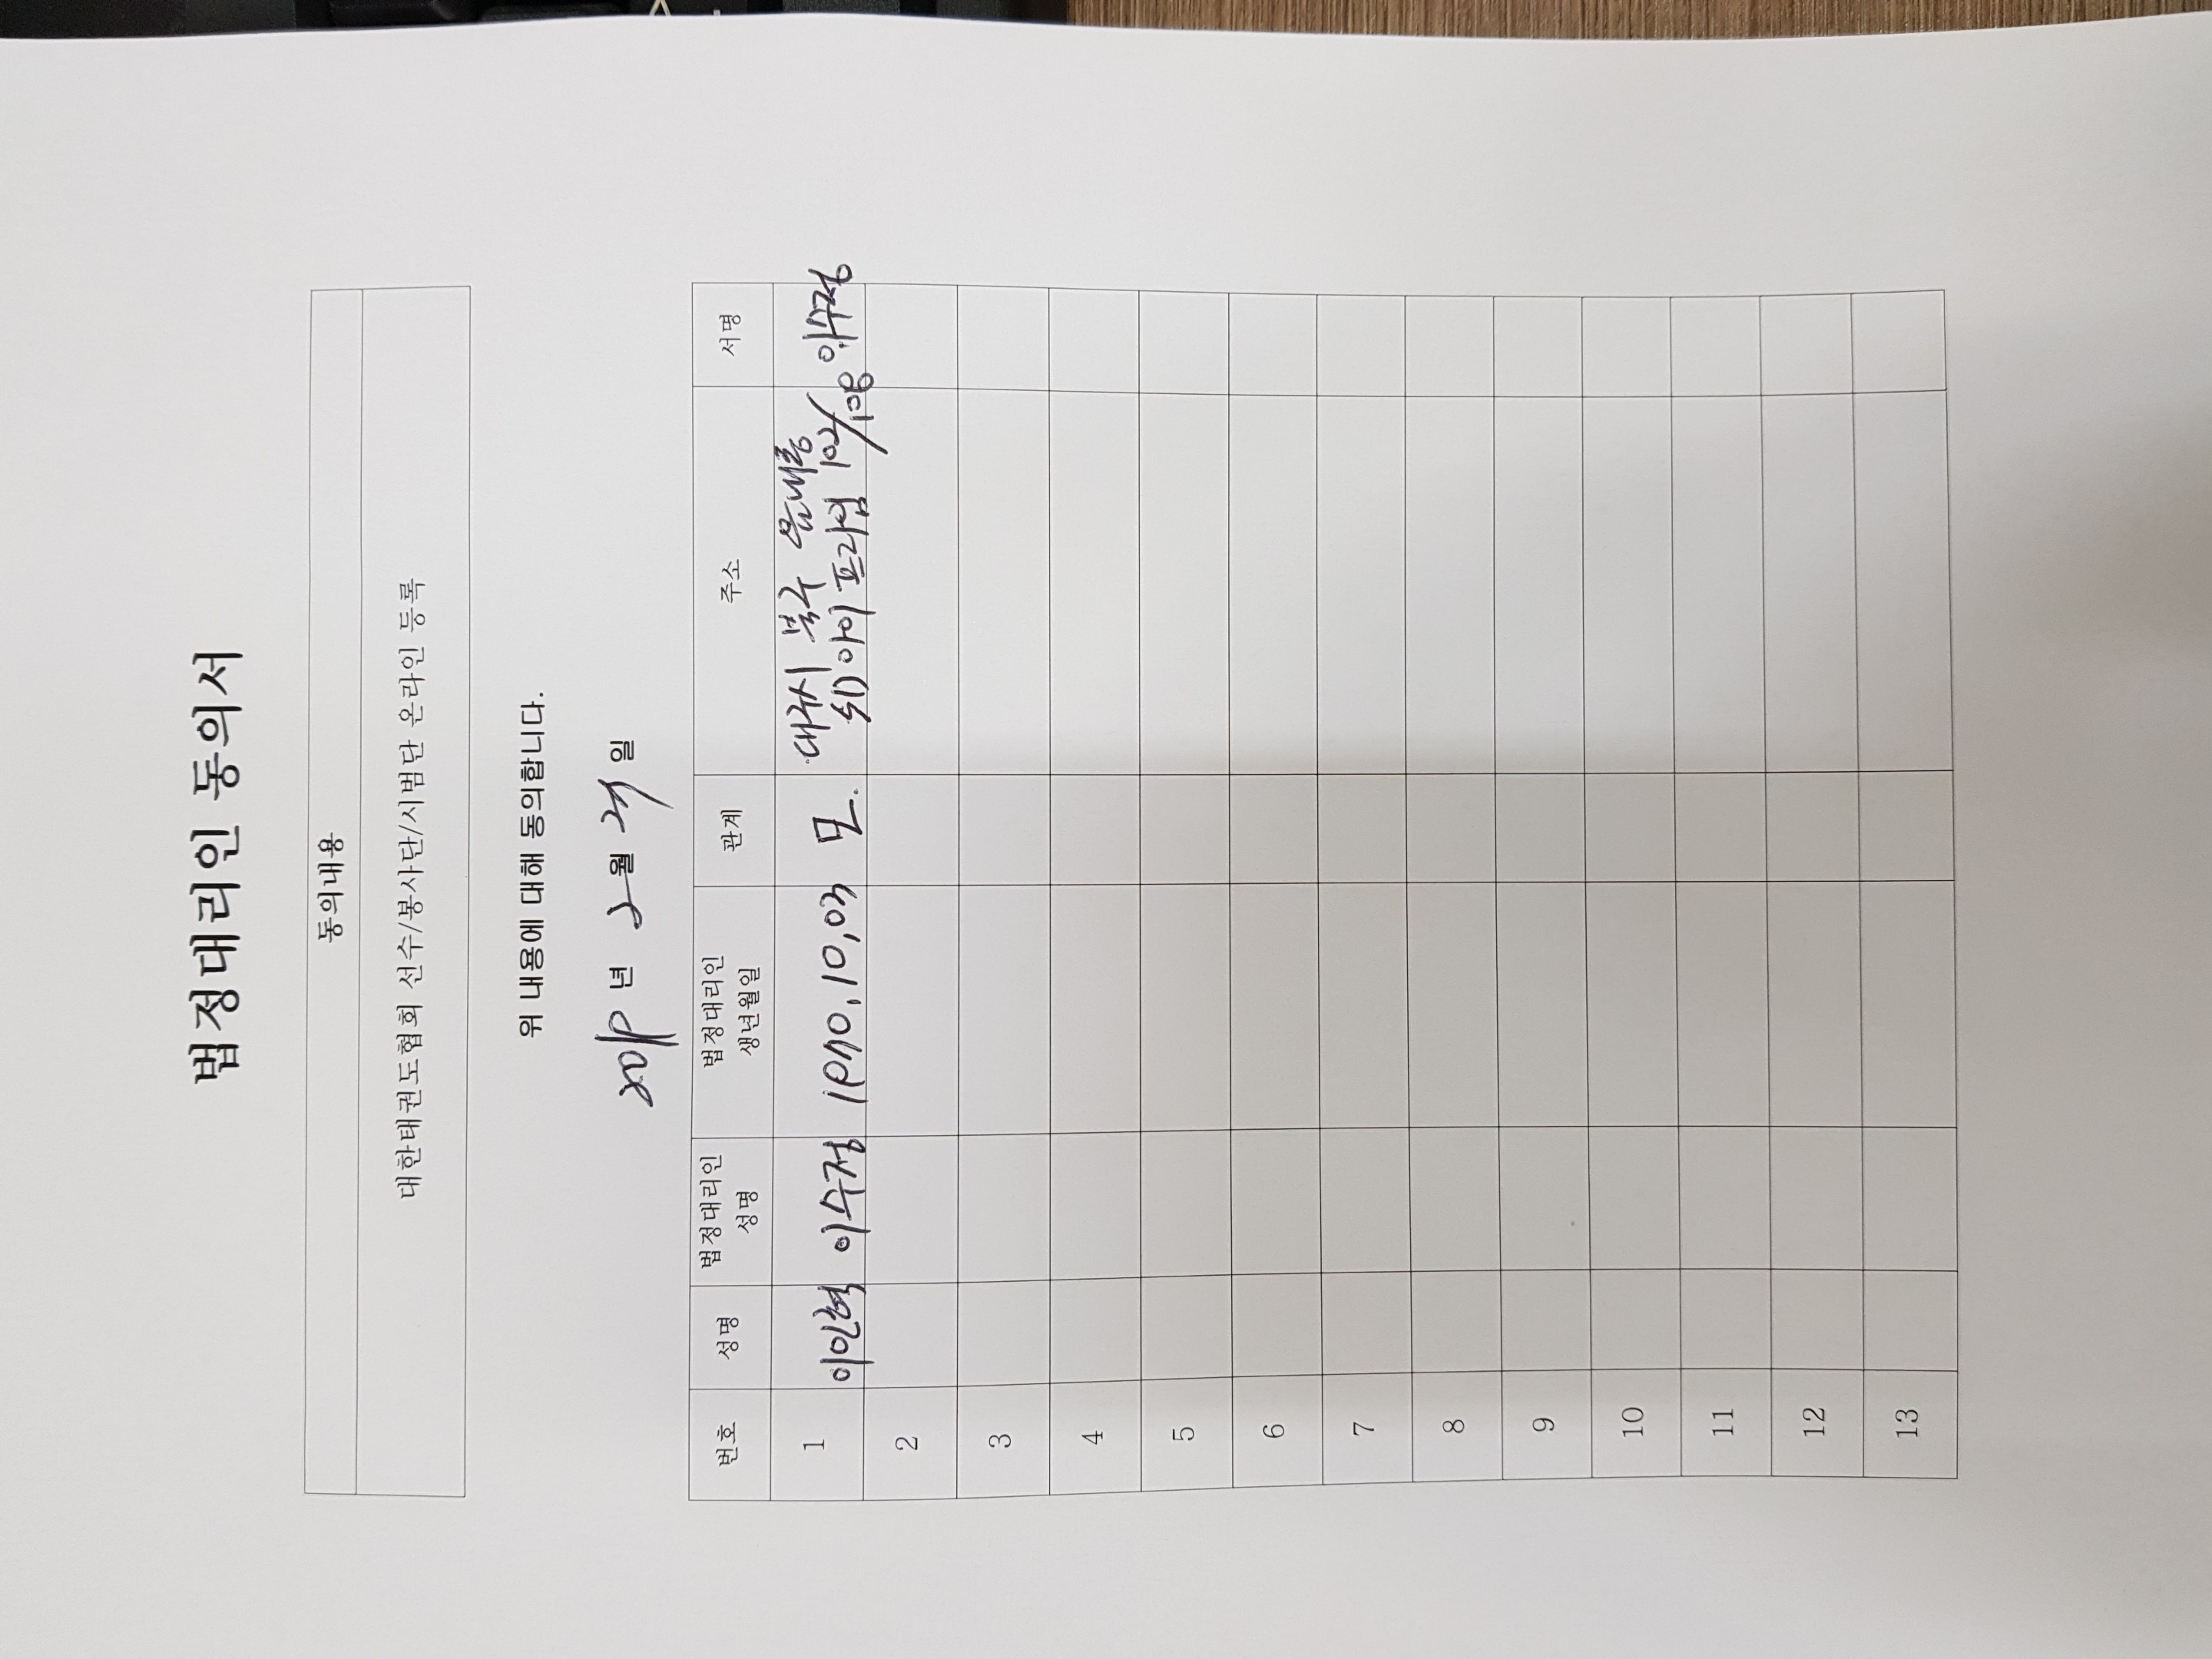 법정대리인 동의서
동의내용
대한태권도협회 선수/봉사단/시범단 온라인 등록
위 내용에 대해 동의합니다.
2019 년 2 월 일
번호 성명 법정대리인 성명 법정대리인 생년월일 관계 주소 서명
1 이인혁 이수정 10,03 모. 대구시 북구 이수정
아이프라임 102/108
2
3
4
5
6
7
8
9
10
11
12
13